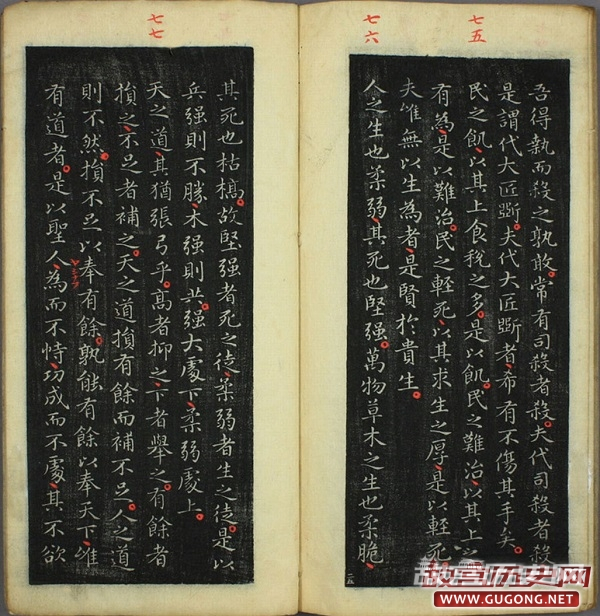 七五
七六
吾得執而殺之孰敢常有司殺者殺夫代司殺者殺
是謂代大匠斲夫代大匠斲者希有不傷其手矣
民之飢以其上食稅之多是以飢民之難治以其上以
有為是以難治民之輕死以其求生之厚是以輕死
夫惟無以生為者是賢於貴生
人之生也柔弱其死也堅强萬物草木之生也柔脆
七七
其死也枯槁故堅强者死之徒柔弱者生之徒是以
兵强則不勝木强則共强大處下柔弱處上
天之道其猶張弓乎高者抑之下者舉之有餘者
損之不足者補之天之道損有餘而補不足人之道
則不然損不足以奉有餘孰能有餘以奉天下惟
有道者是以聖人為而不恃功成而不處其不欲
故宫历史网
WWW.GUGONG.NET